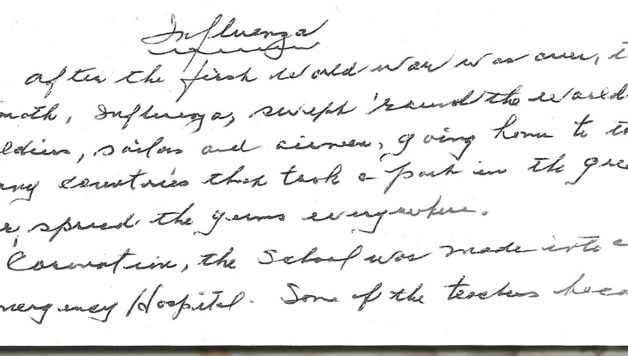 Influenza
after the first world war was over, t
moth, Influenza, swept 'round the world
ldiers, sailors and airmen, going home to t
any countries that took a part in the gre
r, spread the germs everywhere.
Coronation, the School was made into a
mergency Hospital. Some of the teachers beca